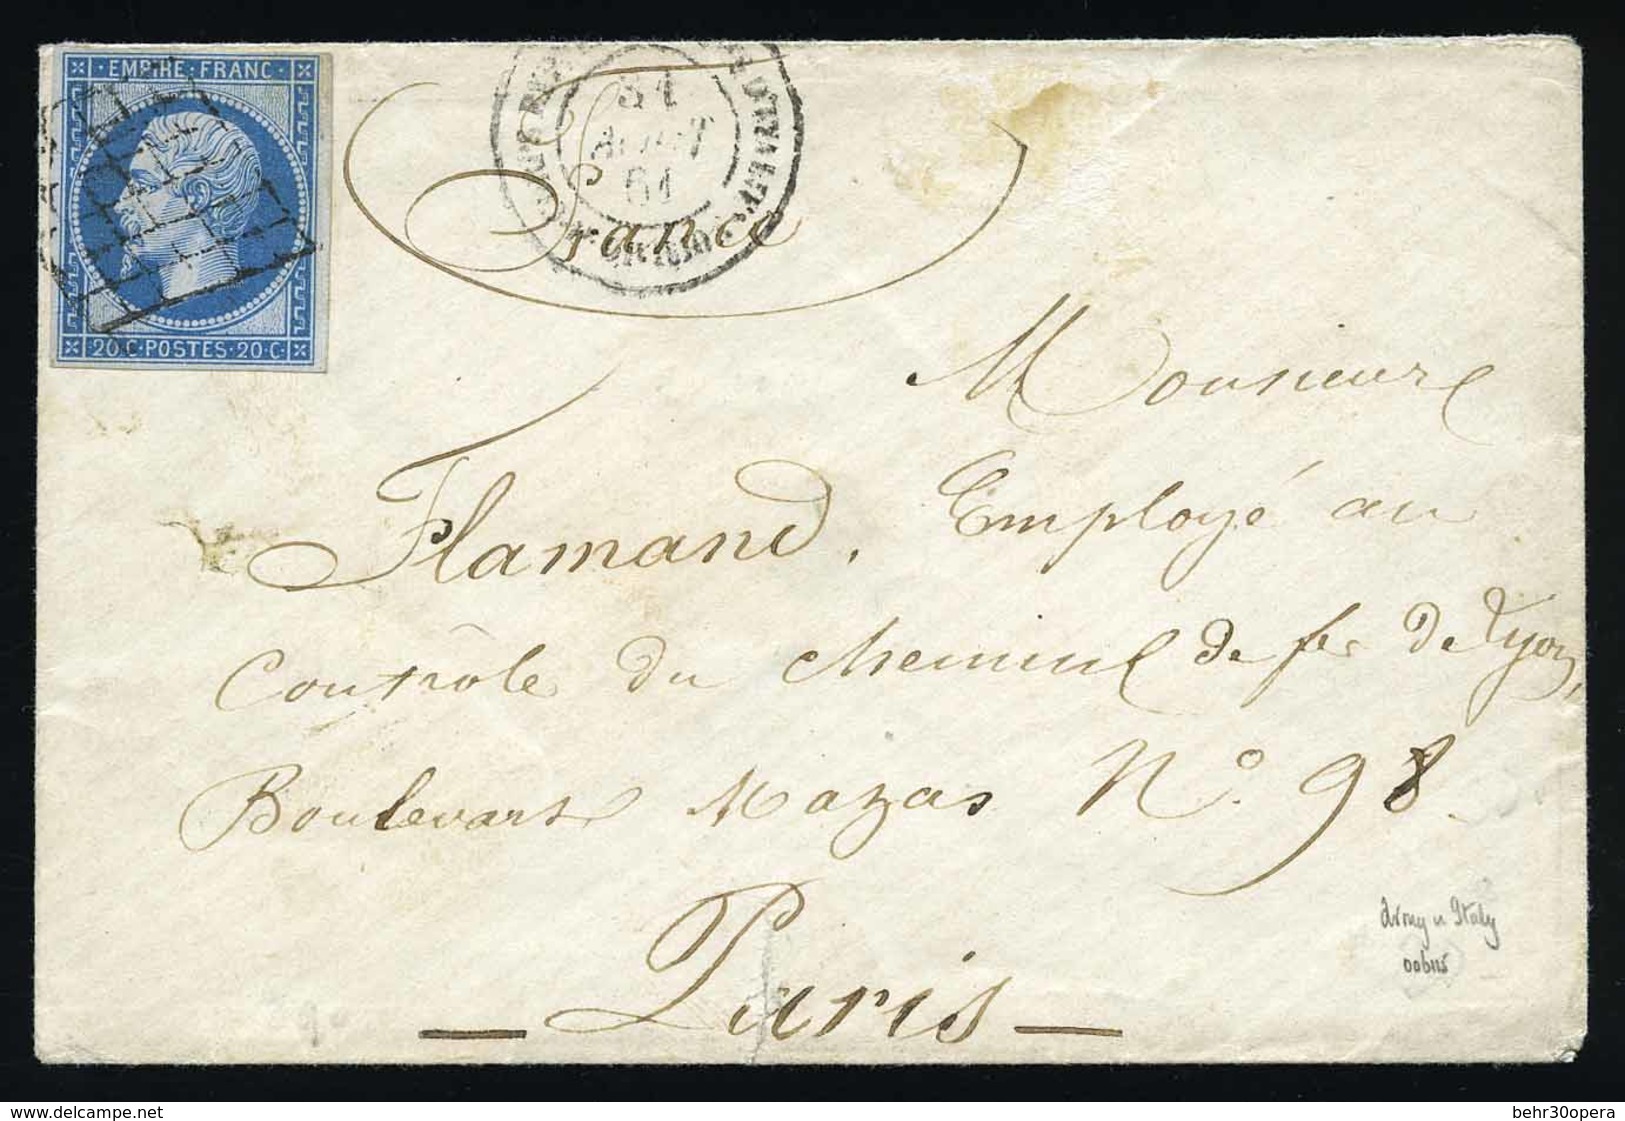 · EMPIRE · FRANC ·
· 20 · C · POSTES · 20 · C ·
31
AOUT
61
France
Monsieur
Flamand, Employé au
Contrôle du chemin de fer de Lyon,
Boulevart Mazas N° 98
— Paris —
delcampe.net
behr30opera